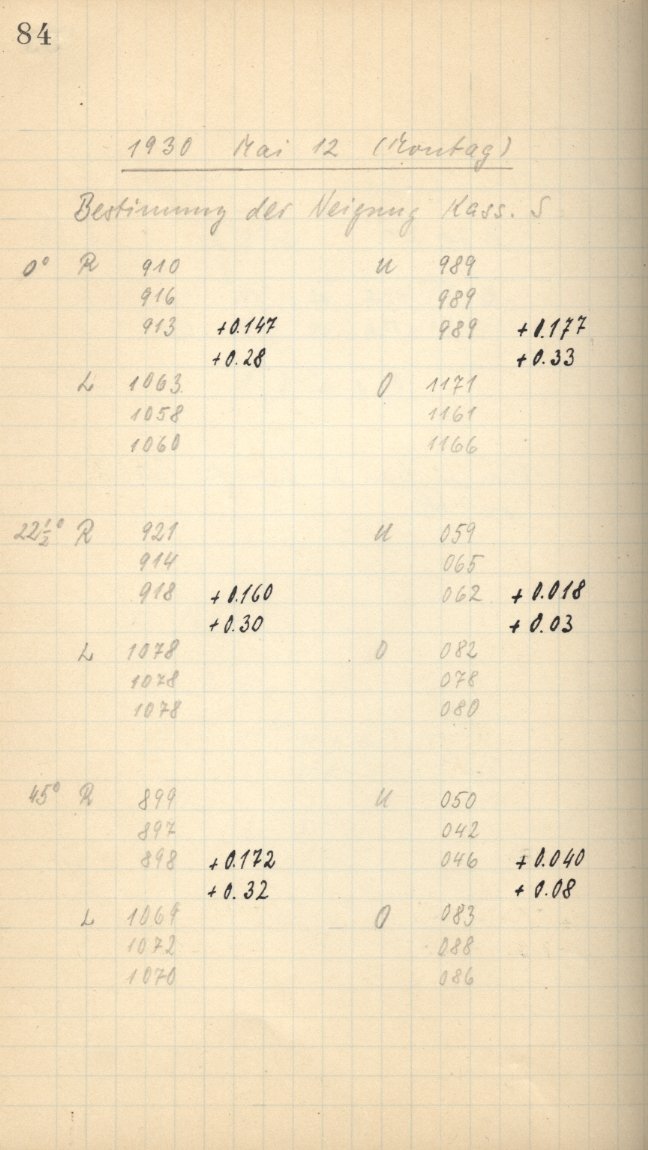 84
1930 Mai 12 (Montag)
Bestimmung der Neigung Kass. S
0° R 910 U 989
916 989
913 +0.147 989 +0.177
+0.28 +0.33
L 1063 O 1171
1058 1161
1060 1166
22½° R 921 U 059
914 065
918 +0.160 062 +0.018
+0.30 +0.03
L 1078 O 082
1078 078
1078 080
45° R 899 U 050
897 042
898 +0.172 046 +0.040
+0.32 +0.08
L 1069 O 083
1072 088
1070 086